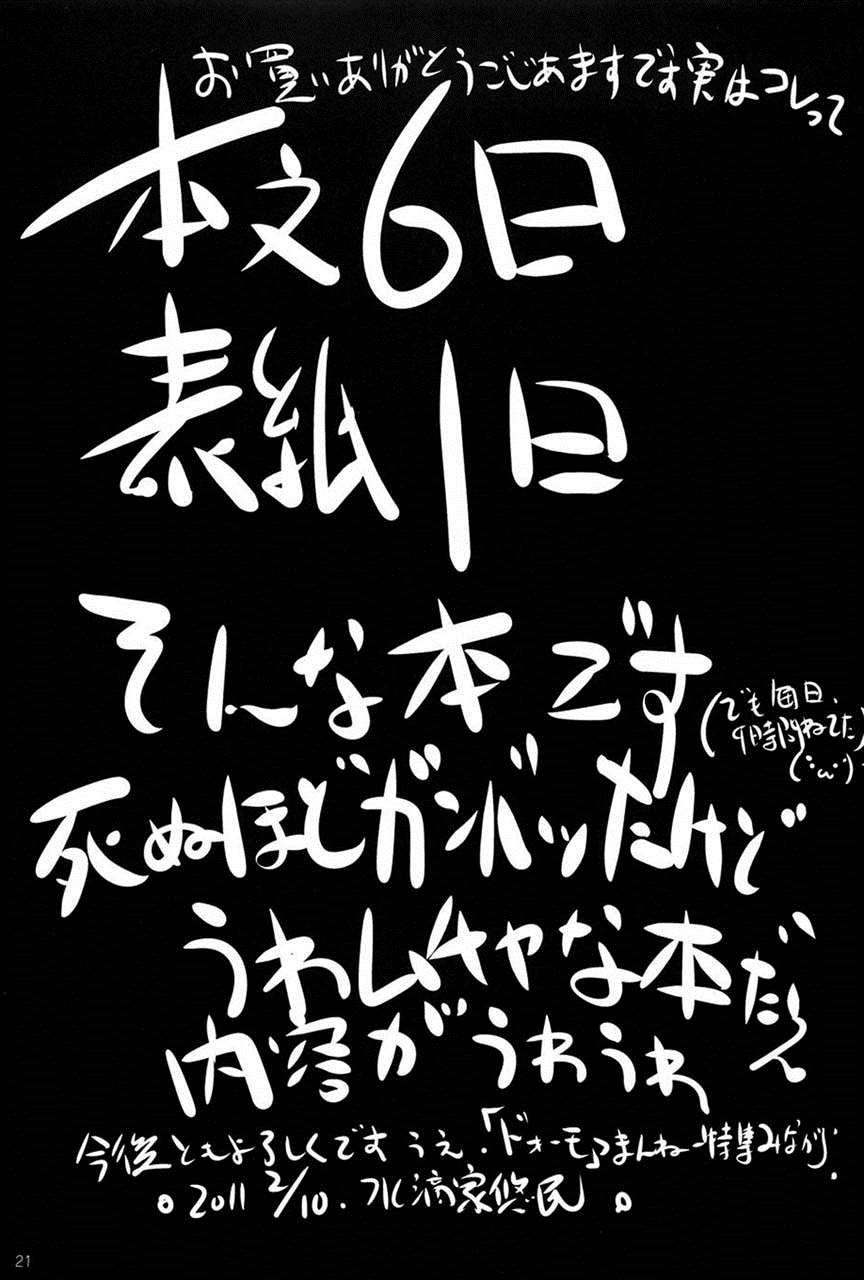 お買いありがとうごじあますです実はコレって
本文6日
表紙1日
そんな本です
(でも毎日、
9時間ねてた)
(:ω:)
死ぬほどガンバッたけど
うわムチャな本だ
内容がうわうわ
今後ともよろしくです うえ.「ドォーモ」まんねー特集みながら.
。2011 2/10. 水滴家悠民 。
21